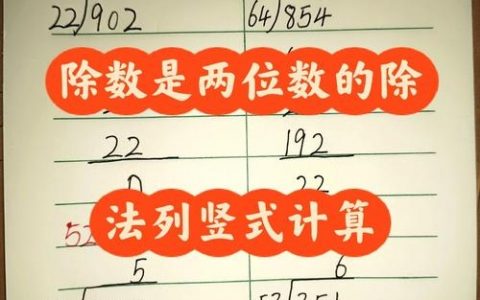 22)902 64)854
除数是两位数的除
22 192
0 22
52
法列竖式计算
5 6